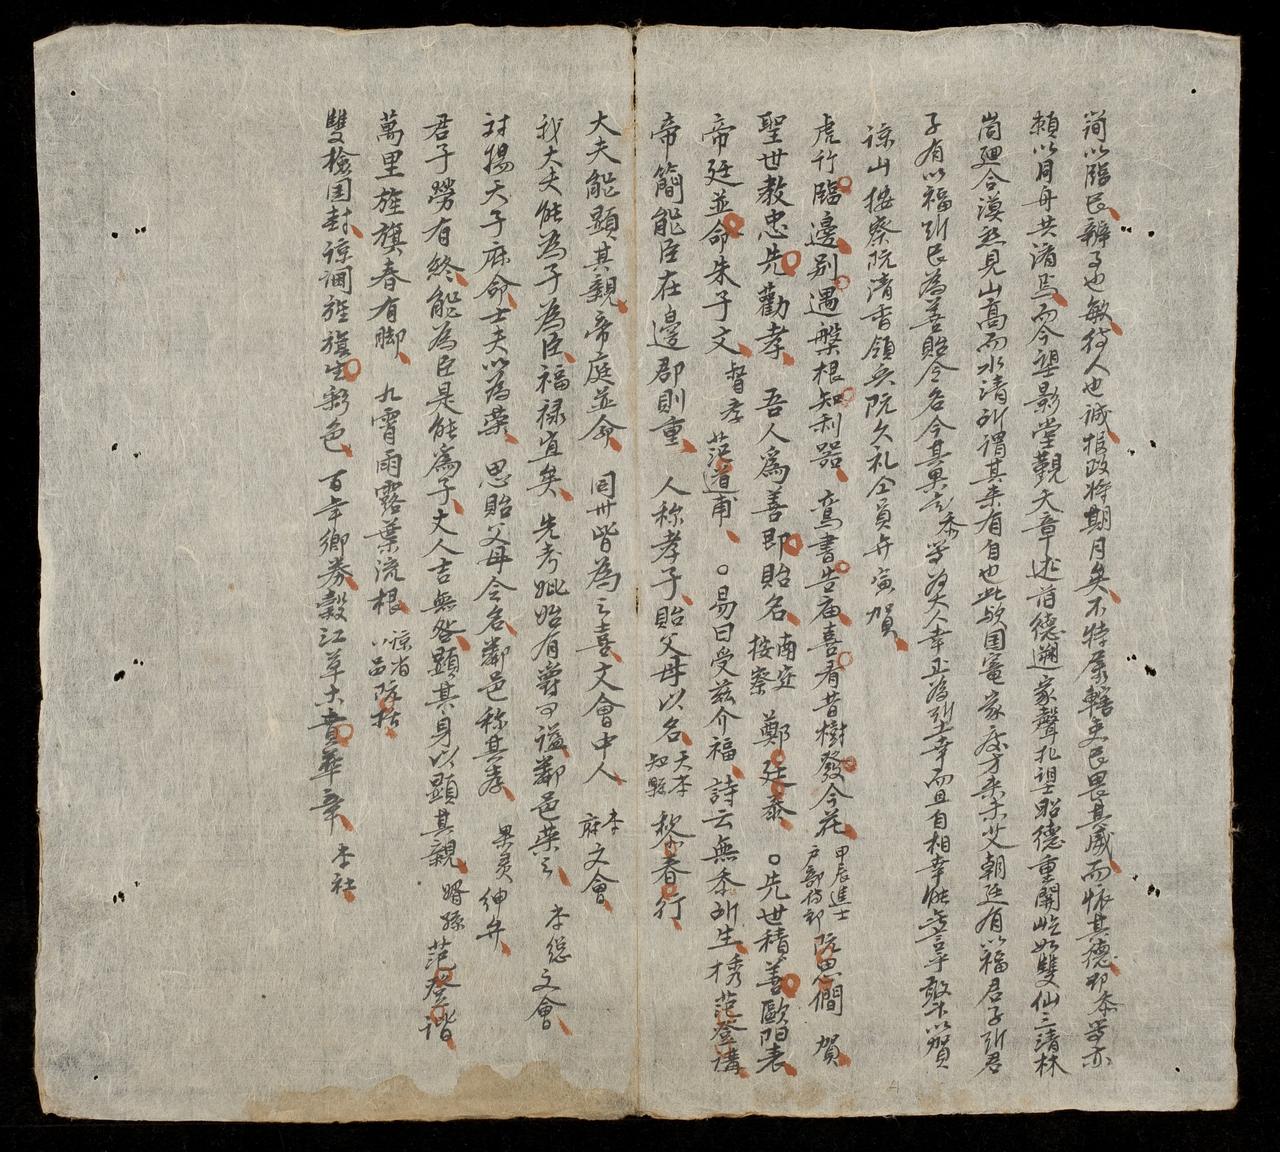 簡以臨民辦事也敏待人也誠報政將期月矣不特屬轄吏民畏其威而懷其德即忝等亦
賴以同舟共濟焉而今望影堂觀天章述前德迦家聲孔望昭德重開屹如雙仙三清林
崗迴合漠然見山高而水清所謂其来有自也此歟国家之方来未艾朝廷有以福君子所君
子有以福所民為善貽令名今其果忝等為大人幸正為所士幸而且自相幸能無言乎敬以賀
諒山按察阮清香領兵阮久礼仝員弁寅賀
虎竹臨邊别遇槃根知利器 鸞書告庙喜看昔樹發今花 甲辰進士户部侍郎阮思僩 賀
聖世教忠先勸孝 吾人爲善即貽名 南定按察 鄭廷泰 ○先世積善歐陽表
帝廷並命朱子文 督孝 范道甫 ○易曰受茲介福 詩云無忝所生 秀 范登講
帝簡能臣在邊郡則重 人称孝子貽父母以名 天本知縣 黎春行
大夫能顯其親帝庭並命 同卅皆為之喜文會中人 本府文會
我大夫能為子為臣福禄宜矣 先考妣始有爵有謚鄰邑荣之 本總文會
对揚天子庥命士夫以為榮 思貽父母令名鄰邑称其孝 果灵紳弁
君子勞有終能為臣是能爲子 丈人吉無咎顯其身以顯其親 壻孫 范登諧
萬里旌旗春有脚 九霄雨露葉流根 諒省八品阮括
雙檢国封諒調旌旗生彩色 百年鄉券穀江草木賁華章 本社